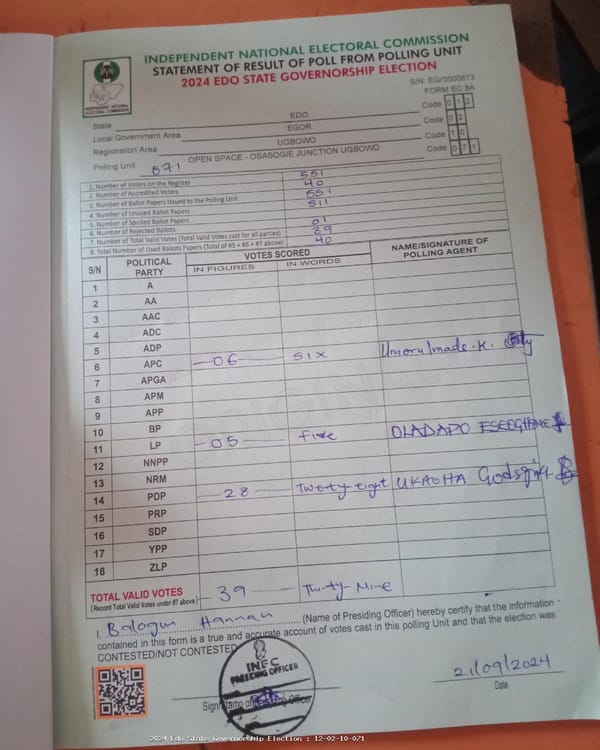 INDEPENDENT NATIONAL ELECTORAL COMMISSION
STATEMENT OF RESULT OF POLL FROM POLLING UNIT
2024 EDO STATE GOVERNORSHIP ELECTION
INDEPENDENT NATIONAL ELECTORAL COMMISSION
S/N: EG/0000673
FORM EC 8A
State EDO Code 012
Local Government Area EGOR Code 02
Registration Area UGBOWO Code 10
Polling Unit 071 OPEN SPACE - OSASOGIE JUNCTION UGBOWO Code 071
1. Number of Voters on the Register 551
2. Number of Accredited Voters 40
3. Number of Ballot Papers Issued to the Polling Unit 551
4. Number of Unused Ballot Papers 511
5. Number of Spoiled Ballot Papers
6. Number of Rejected Ballots 01
7. Number of Total Valid Votes (Total Valid Votes cast for all parties) 39
8. Total Number of Used Ballots Papers (Total of #5 + #6 + #7 above) 40
S/N POLITICAL PARTY VOTES SCORED NAME/SIGNATURE OF POLLING AGENT
IN FIGURES IN WORDS
1 A
2 AA
3 AAC
4 ADC
5 ADP
6 APC 06 SIX Umoru Imade . K.
7 APGA
8 APM
9 APP
10 BP
11 LP 05 five OLADAPO
12 NNPP
13 NRM
14 PDP 28 Twenty-eight UKAOHA Godsgift
15 PRP
16 SDP
17 YPP
18 ZLP
TOTAL VALID VOTES 39 Thirty-Nine
(Record Total Valid Votes under #7 above)
I, Balogun Hannah (Name of Presiding Officer) hereby certify that the information
contained in this form is a true and accurate account of votes cast in this polling Unit and that the election was
CONTESTED/NOT CONTESTED
INEC
PRESIDING OFFICER
21/09/2024
Date
2024 Edo State Governorship Election : 12-02-10-071